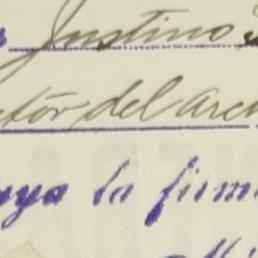 Justino
ctor del arc
uya la firm